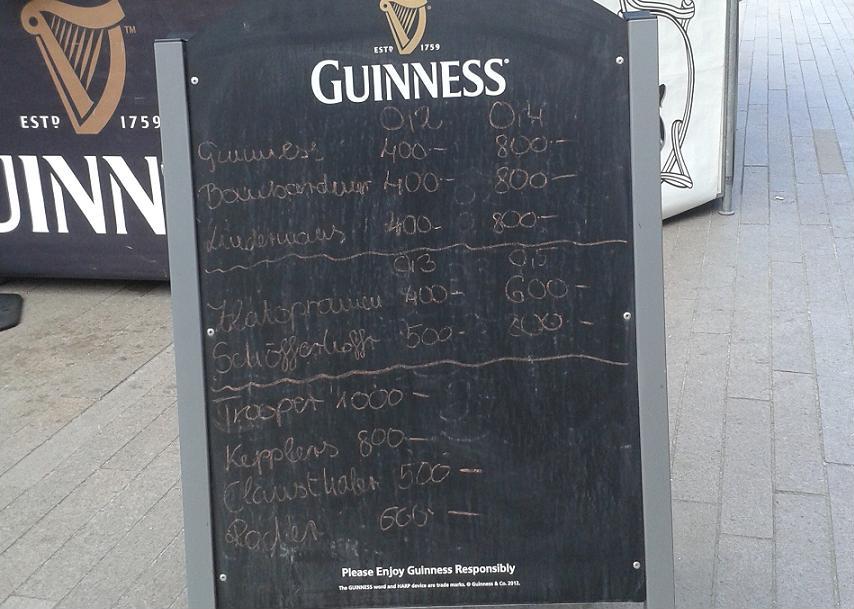 ESTD 1759
UINN
ESTD 1759
GUINNESS
0,2 0,4
Guinness 400.- 800.-
Bombardier 400.- 800.-
Lindemans 400.- 800.-
0,3 0,5
Zlatopramen 400.- 600.-
Schöfferhoffr 500.- 800.-
Trooper 1000-
Kepplers 800.-
Clausthaler 500-
Radler 600.-
Please Enjoy Guinness Responsibly
The GUINNESS word and HARP device are trade marks. © Guinness & Co. 2012.